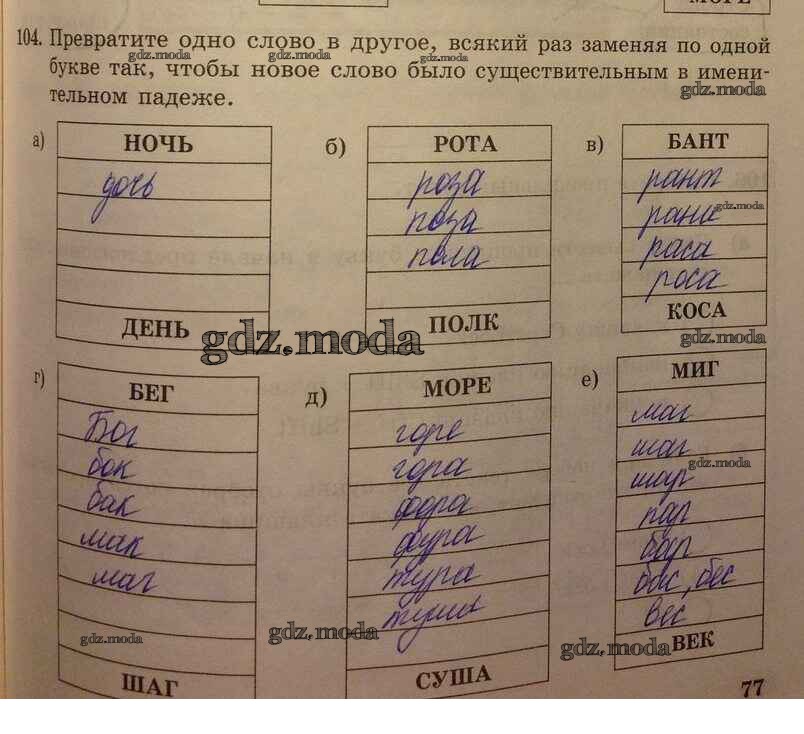 МОРЕ
gdz.moda
104. Превратите одно слово в другое, всякий раз заменяя по одной
gdz.moda gdz.moda gdz.moda
букве так, чтобы новое слово было существительным в имени-
тельном падеже.
gdz.moda
а)
НОЧЬ
дочь
ДЕНЬ
б)
РОТА
роза
поза
пола
ПОЛК
в)
БАНТ
рант
рана
gdz.moda
раса
роса
КОСА
gdz.moda
gdz.moda
г)
БЕГ
Бог
бок
бак
мак
маг
gdz.moda
ШАГ
д)
МОРЕ
горе
гора
фора
фура
тура
туша
gdz.moda
СУША
е)
МИГ
маг
шаг
gdz.moda
шар
пар
бар
бас, бес
вес
ВЕК
gdz.moda
77